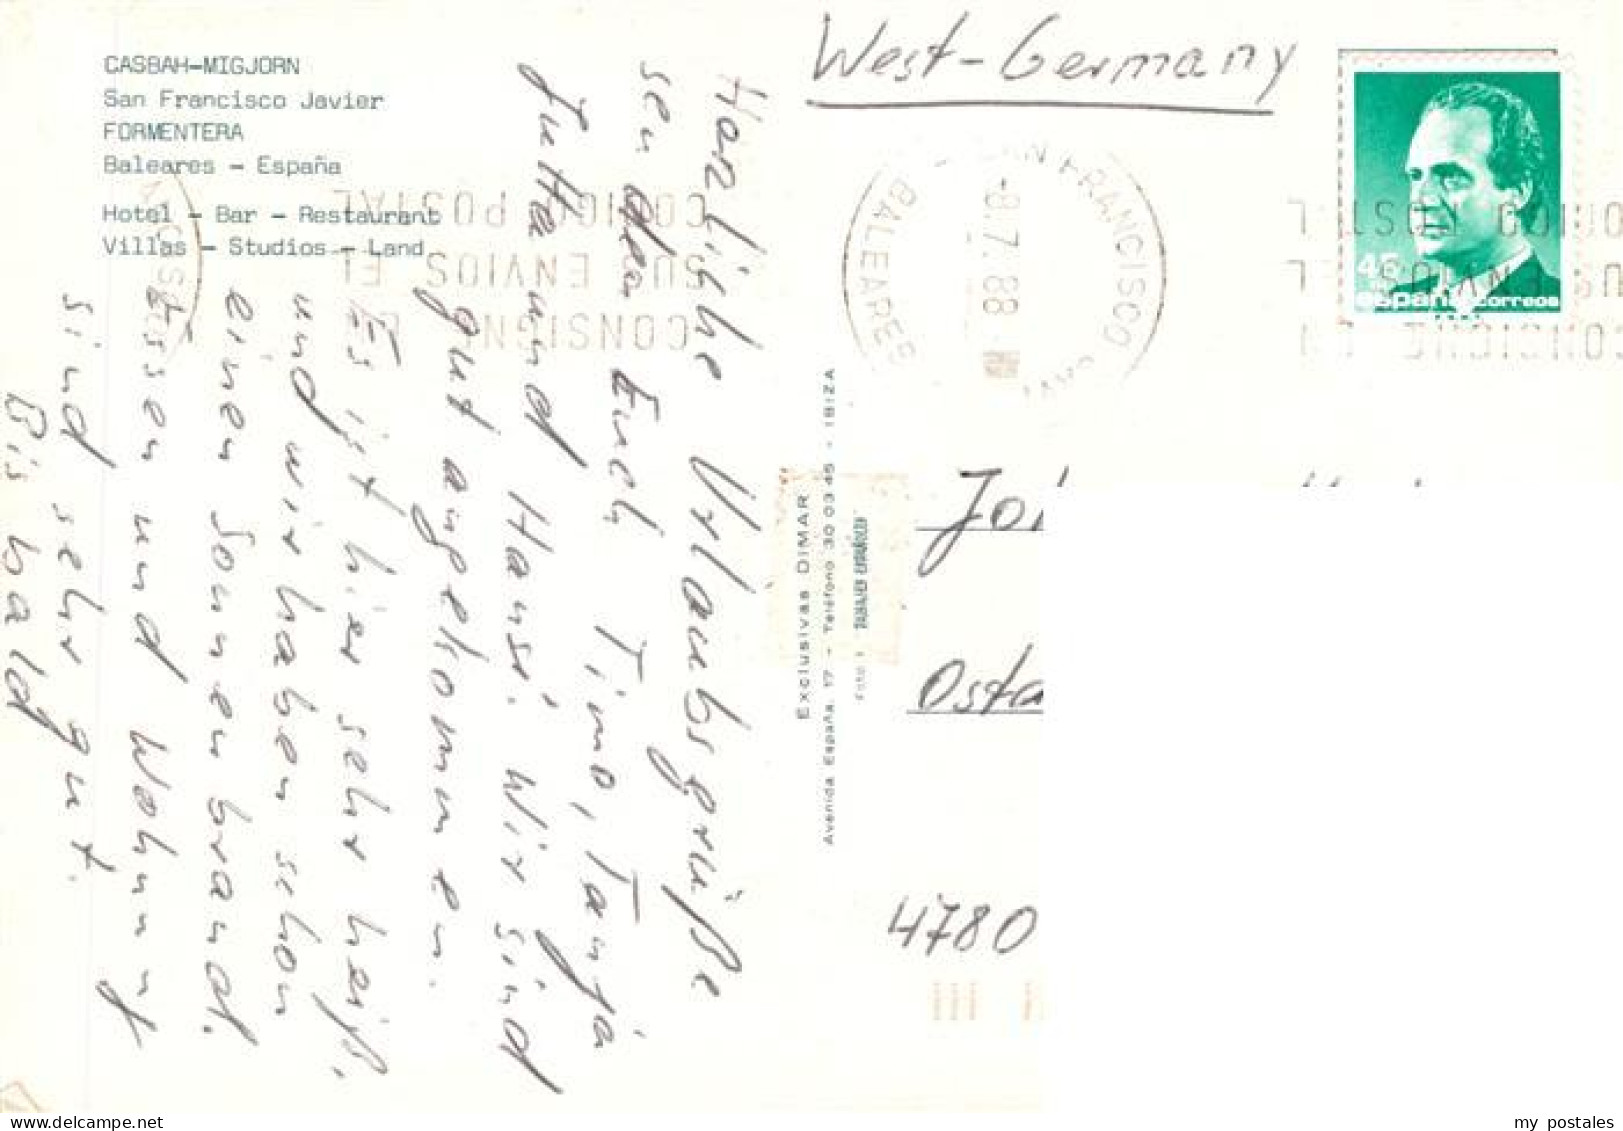 CASBAH-MIGJORN
San Francisco Javier
FORMENTERA
Baleares - España
Hotel - Bar - Restaurant
Villas - Studios - Land
Herzliche Urlaubsgrüße
senden Euch Timo, Tanja
Jutta und Hansi. Wir sind
gut angekommen.
Es ist hier sehr heiß.
und wir haben schon
einen Sonnenbrand.
Essen und Wohnung
sind sehr gut.
Bis bald
Exclusivas DIMAR
Avenida España, 17 - Teléfono 30 03 45 - IBIZA
West-Germany
SAN FRANCISCO
BALEARES
-8.7.88
CONSIGNE
SU ENVIOS EL
CODIGO POSTAL
45
españa correos
4780
my postales